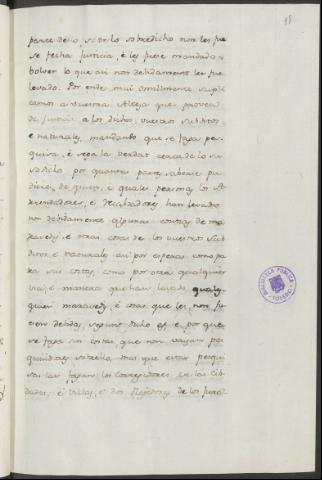 11
parece dello, sobre lo sobredicho non les fue
se fecha Justicia, é les fuere mandado
bolver lo que asi non debidamente les fue
levado. Por ende mui omilmente supli
camos a vuestra Alteza que provea
de justicia a los dichos vuestros subditos,
e naturales, mandando que se faga pes
quisa, é sepa la verdat cerca de lo su
sodicho por quantas partes saberse pu
diere, de quien, é quales personas los A
rrendadores, é Recabdadores han levado
non debidamente algunas contias de ma
ravedis, é otras cosas de los vuestros sub
ditos, é naturales asi por
cartas, como por otra qualquier
via, é manera que han levado, qual
quier maravedis, é cosas que les non fue
sen debidas, segunt dicho es, é por que
se faga sin costas, que non vayan pes
quisidores sobre ello, mas que estas pesqui
sas las fagan los corregidores en las Cib
dades, é villas, e dos Regidores de los jura
BIBLIOTECA PÚBLICA
TOLEDO